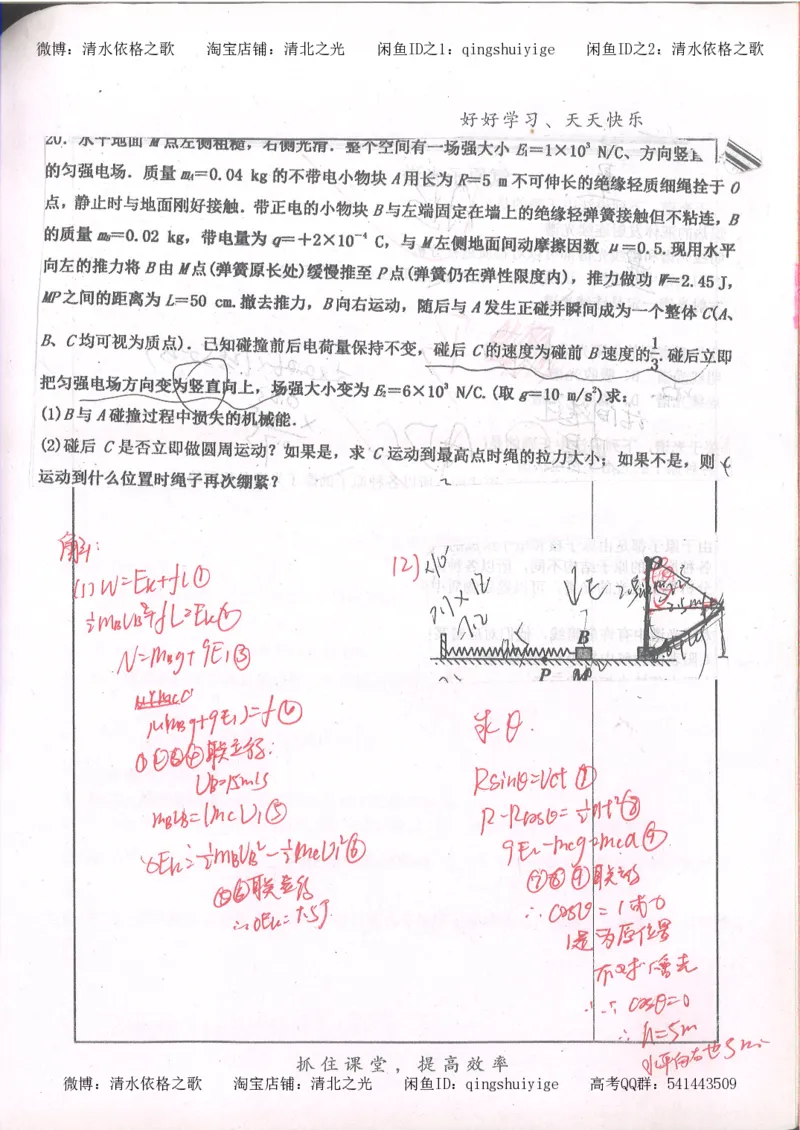 微博：清水依格之歌 淘宝店铺：清北之光 闲鱼ID之1：qingshuiyige 闲鱼ID之2：清水依格之歌
好好学习、天天快乐
20. 水平地面 M 点左侧粗糙，右侧光滑．整个空间有一场强大小 E₁=1×10³ N/C、方向竖直
的匀强电场．质量 mA=0.04 kg 的不带电小物块 A 用长为 R=5 m 不可伸长的绝缘轻质细绳拴于 O
点，静止时与地面刚好接触．带正电的小物块 B 与左端固定在墙上的绝缘轻弹簧接触但不粘连，B
的质量 mB=0.02 kg，带电量为 q=+2×10⁻⁴ C，与 M 左侧地面间动摩擦因数 μ=0.5.现用水平
向左的推力将 B 由 M 点(弹簧原长处)缓慢推至 P 点(弹簧仍在弹性限度内)，推力做功 W=2.45 J，
MP 之间的距离为 L=50 cm.撤去推力，B 向右运动，随后与 A 发生正碰并瞬间成为一个整体 C(A、
B、C 均可视为质点)．已知碰撞前后电荷量保持不变，碰后 C 的速度为碰前 B 速度的1/3.碰后立即
把匀强电场方向变为竖直向上，场强大小变为 E₂=6×10³ N/C.(取 g=10 m/s²)求：
(1)B 与 A 碰撞过程中损失的机械能．
(2)碰后 C 是否立即做圆周运动？如果是，求 C 运动到最高点时绳的拉力大小；如果不是，则 C
运动到什么位置时绳子再次绷紧？
解：
(1) W=Ek+fL①
½mBvB²+fL=Ek②
N=mBg+qE₁③
μ(mBg+qE₁)=f④
①②③④联立得：
UB=15m/s
mBUB=(mC)U₁⑤
½mBUB²-½mCU₁²⑥
⑤⑥联立得
(2)
E
2.5m
B
P M
求θ.
Rsinθ=Uct⑦
R-Rcosθ=½at²⑧
qE₂-mcg=mca⑨
⑦⑧⑨联立得
∴cosθ=1或0
1是为原位置
∴cosθ=0
∴h=5m
抓住课堂，提高效率
微博：清水依格之歌 淘宝店铺：清北之光 闲鱼ID：qingshuiyige 高考QQ群：541443509